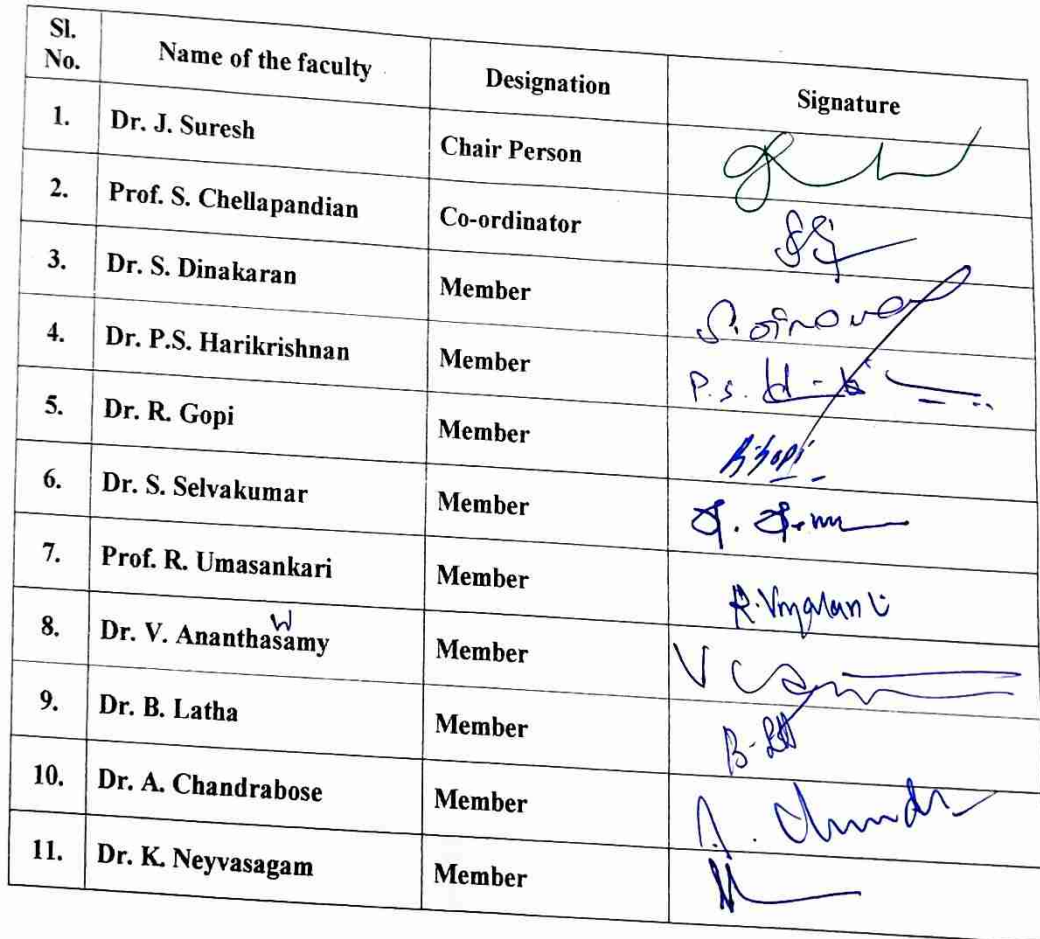 Sl. No. Name of the faculty Designation Signature
1. Dr. J. Suresh Chair Person
2. Prof. S. Chellapandian Co-ordinator
3. Dr. S. Dinakaran Member
4. Dr. P.S. Harikrishnan Member P.s.
5. Dr. R. Gopi Member R.Gopi
6. Dr. S. Selvakumar Member
7. Prof. R. Umasankari Member
8. Dr. V. Ananthasamy Member
9. Dr. B. Latha Member
10. Dr. A. Chandrabose Member
11. Dr. K. Neyvasagam Member